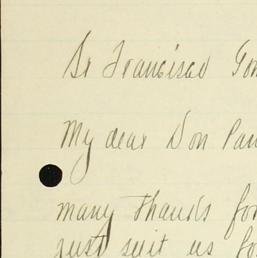 Sr Francisco Gon
My dear Don Pan
many thanks for
just suit us fo